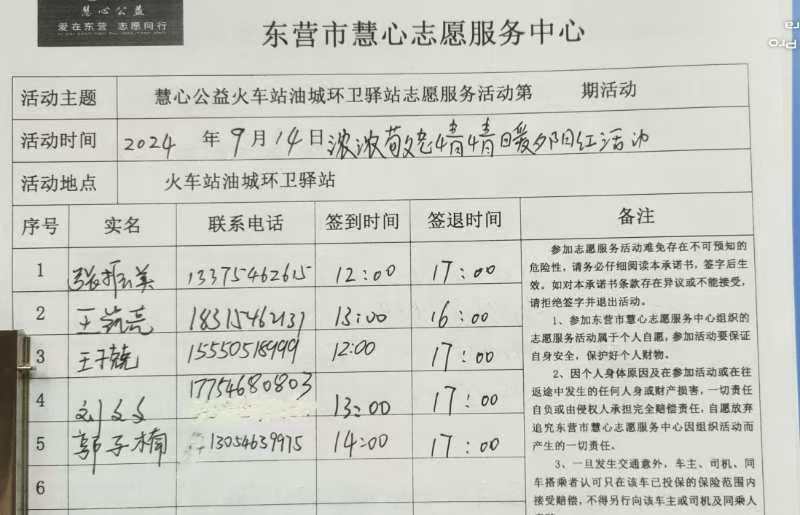 慧心公益
爱在东营 志愿同行
东营市慧心志愿服务中心
活动主题 慧心公益火车站油城环卫驿站志愿服务活动第 期活动
活动时间 2024 年9月14日浓浓敬老情情暖夕阳红活动
活动地点 火车站油城环卫驿站
序号 实名 联系电话 签到时间 签退时间 备注
1 张振美 13375462615 12:00 17:00
2 王 亮 18315462131 13:00 16:00
3 王 15550518999 12:00 17:00
4 刘文文 17754680803 13:00 17:00
5 郭子楠 13054639975 14:00 17:00
6
参加志愿服务活动难免存在不可预知的
危险性,请务必仔细阅读本承诺书,签字后生
效。如对本承诺书条款存在异议或不能接受,
请拒绝签字并退出活动。
1、参加东营市慧心志愿服务中心组织的
志愿服务活动属于个人自愿,参加活动要保证
自身安全,保护好个人财物。
2、因个人身体原因及在参加活动或在往
返途中发生的任何人身或财产损害,一切责任
自负或由侵权人承担完全赔偿责任,自愿放弃
追究东营市慧心志愿服务中心因组织活动而
产生的一切责任。
3、一旦发生交通意外,车主、司机、同
车搭乘者认可只在该车已投保的保险范围内
接受赔偿,不得另行向该车主或司机及同乘人